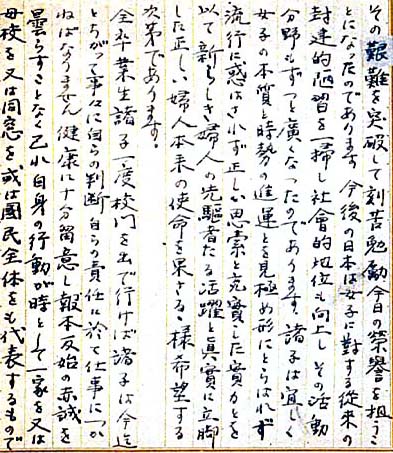 その艱難を突破して刻苦勉勵今日の榮譽を担うこ
とになったのであります 今後の日本は女子に對する從来の
封建的陋習を一掃し社會的地位も向上しその活動
分野もずっと廣くなったのであります。諸子は宜しく
女子の本質と時勢の進運とを見極め形にとらはれず
流行に惑はされず正しい思索と充實した實力とを
以て新らしき婦人の先駆者たる活躍と眞實に立脚
した正しい婦人本来の使命を果さるゝ様希望する
次第であります。
全卒業生諸子一度校門を出で行けば諸子は今迄
とちがって事々に自らの判断自らの責任に於て仕事につか
ねばなりません健康に十分留意し報本反始の赤誠を
曇らすことなく己れ自身の行動が時として一家を又は
母校を又は同窓を或は國民全体をも代表するもので